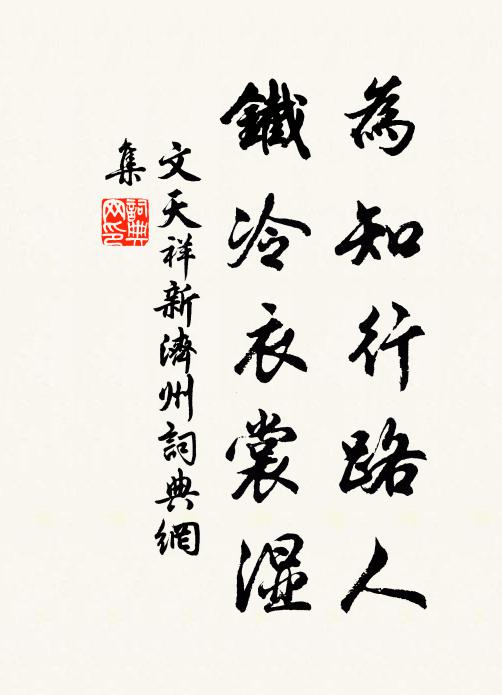 為知行路人
鐵冷衣裳濕
文天祥新濟州詞典網
集
詞典
网印